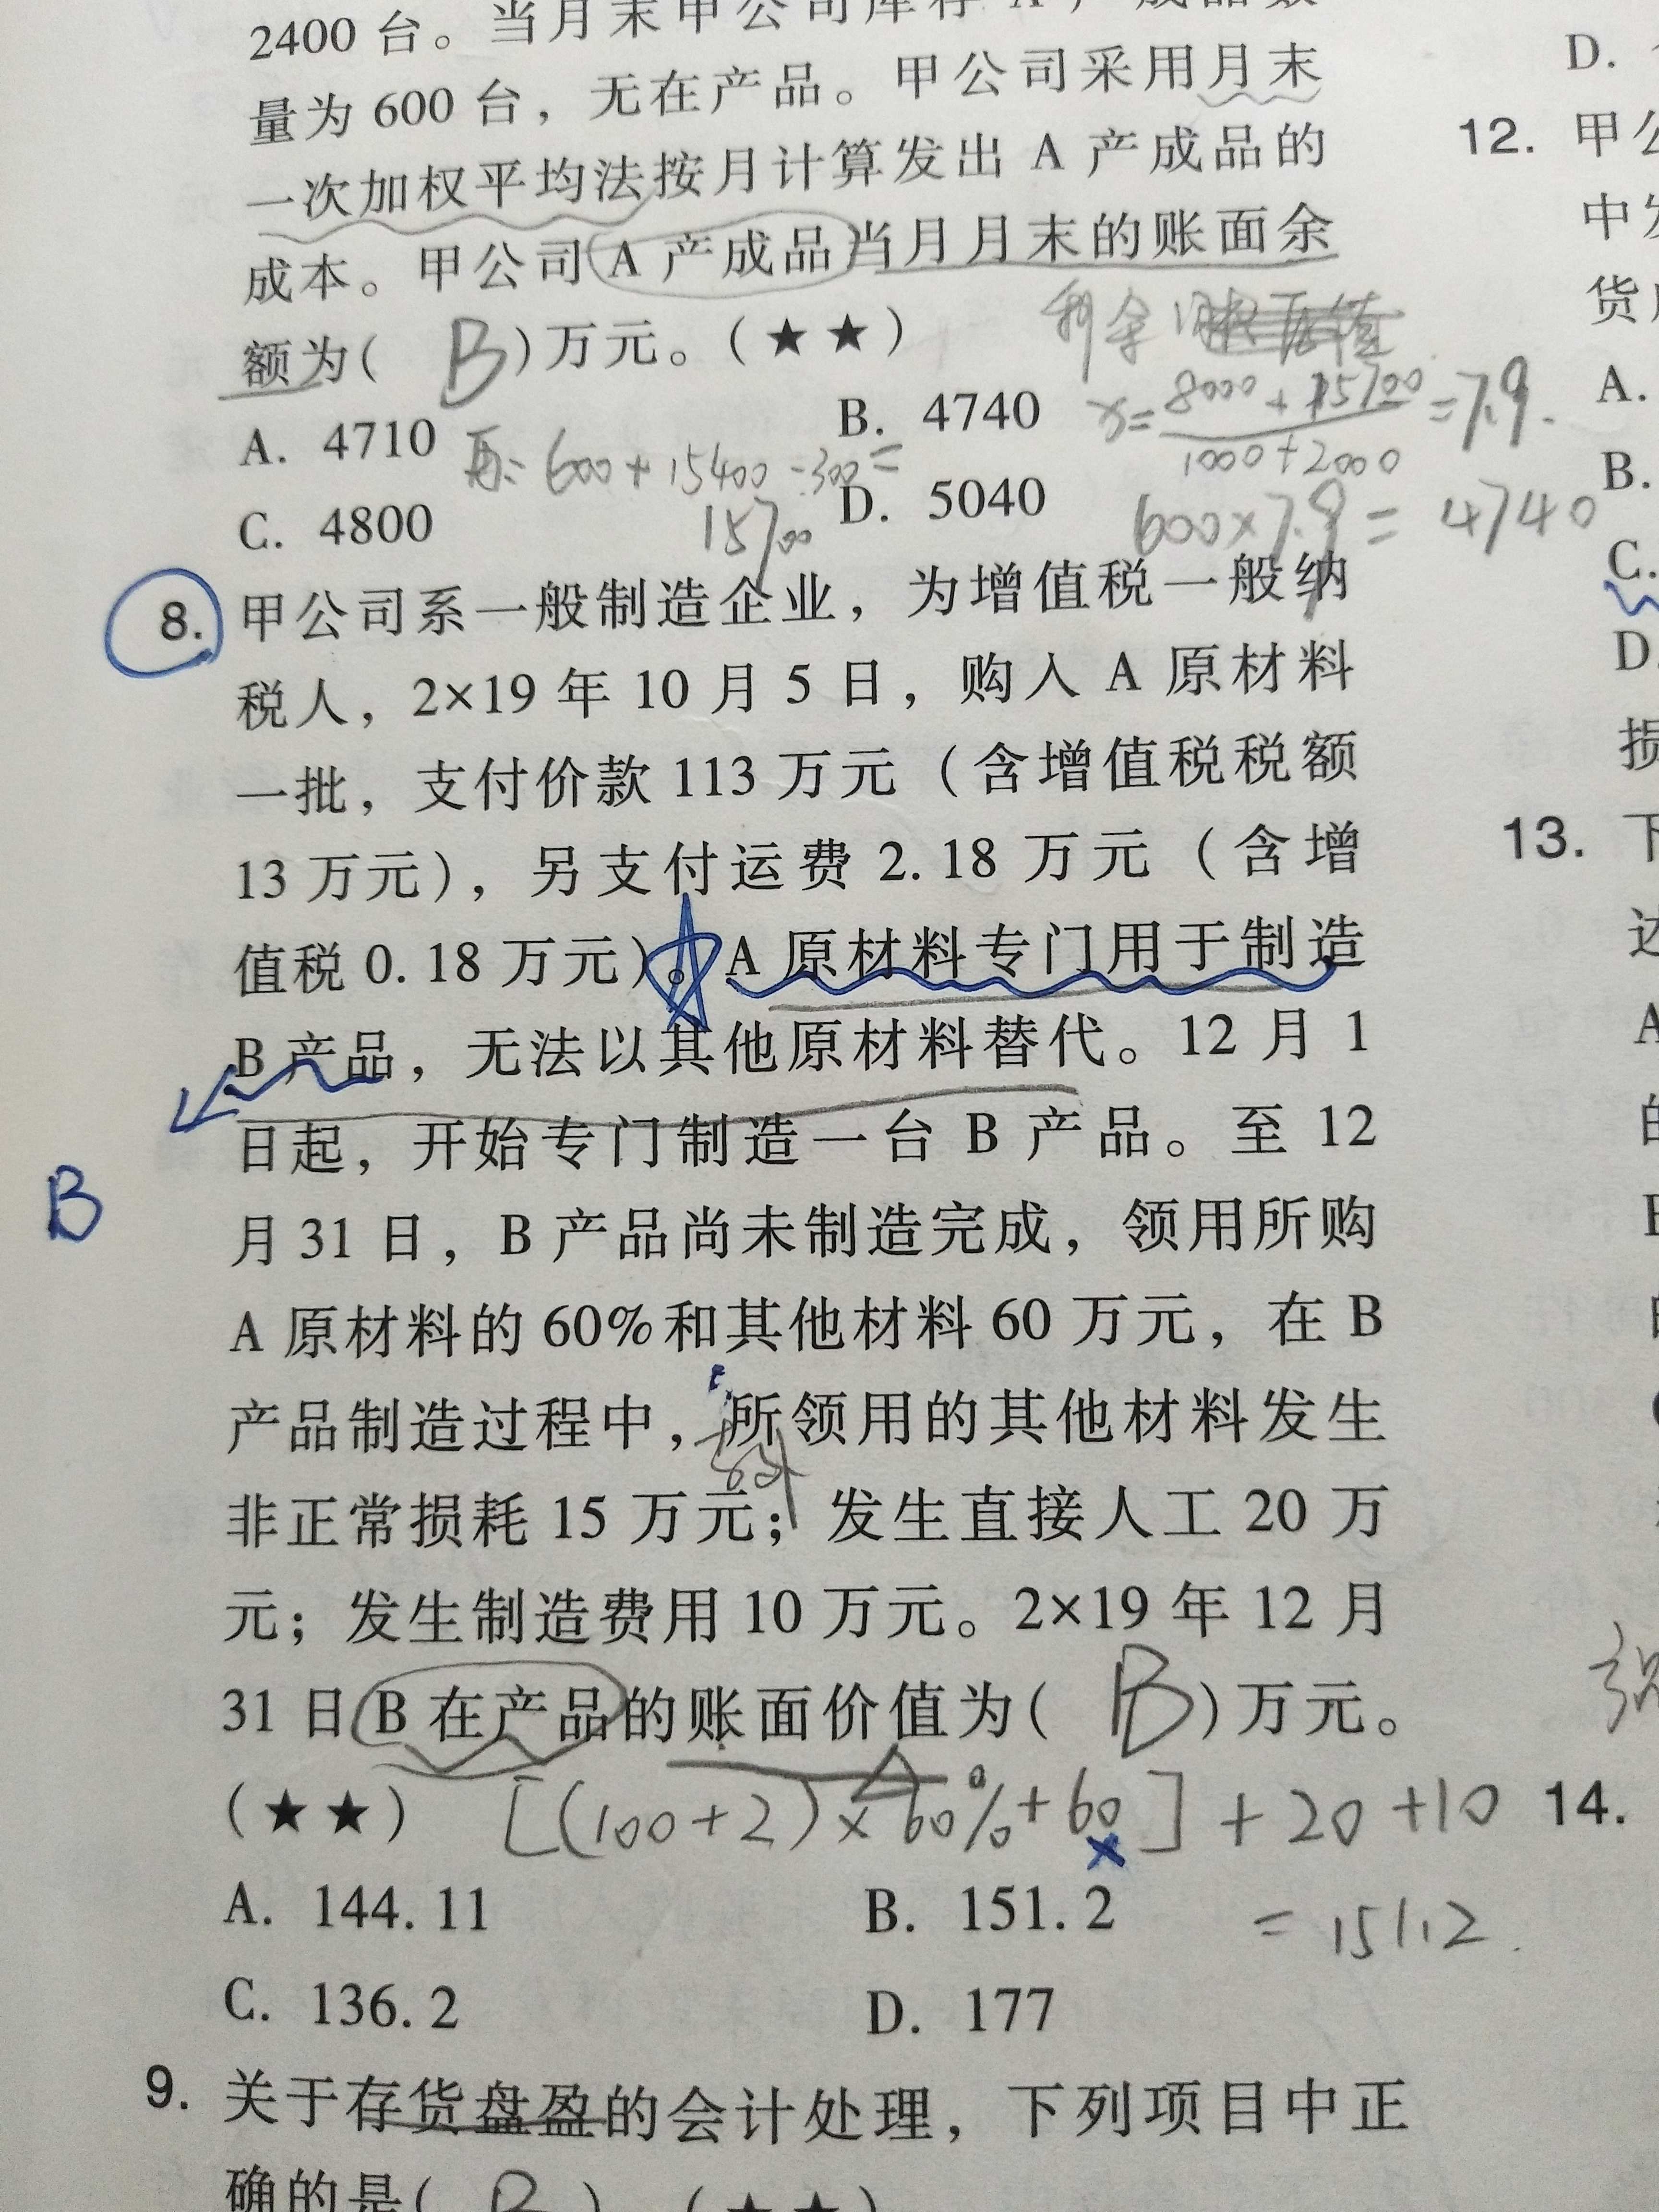 2400 台。当月末甲公司库存 A 产成品数
量为 600 台，无在产品。甲公司采用月末
一次加权平均法按月计算发出 A 产成品的
成本。甲公司 A 产成品当月月末的账面余
剩余
额为( B )万元。(★★)
x= 8000 + 15700 / 1000+2000 =7.9
A. 4710
B. 4740
600 + 15400 - 300 =
15700
C. 4800
D. 5040
600×7.9 = 4740
8. 甲公司系一般制造企业，为增值税一般纳
税人，2×19 年 10 月 5 日，购入 A 原材料
一批，支付价款 113 万元（含增值税税额
13 万元），另支付运费 2. 18 万元（含增
值税 0. 18 万元）。A 原材料专门用于制造
B 产品，无法以其他原材料替代。12 月 1
日起，开始专门制造一台 B 产品。至 12
B
月 31 日，B 产品尚未制造完成，领用所购
A 原材料的 60%和其他材料 60 万元，在 B
产品制造过程中，所领用的其他材料发生
非正常损耗 15 万元；发生直接人工 20 万
元；发生制造费用 10 万元。2×19 年 12 月
31 日 B 在产品的账面价值为( B )万元。
(★★)
[(100+2)×60%+60]+20+10
A. 144. 11
B. 151. 2
= 151.2
C. 136. 2
D. 177
9. 关于存货盘盈的会计处理，下列项目中正
确的是( B )。(★★)
D.
12. 甲公
中发
货
A.
B.
C.
D.
损
13. 下
达
A
的
B
14.